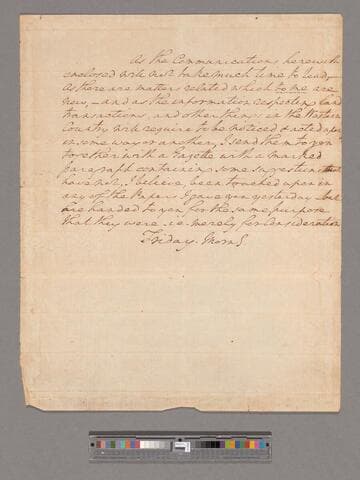 As the Communications herewith
enclosed will not take much time to read;
as there are matters related which to me are
new,—and as the information respecting land
transactions, and other things in the Western
Country will require to be noticed & acted upon
in some way or another, I send them to you
together with a Gazette with a marked
paragraph containing some suggestions that
have not, I believe, been touched upon in
any of the Papers I gave you yesterday—but
are handed to you for the same purpose
that they were i.e. merely for consideration
Friday. Morng